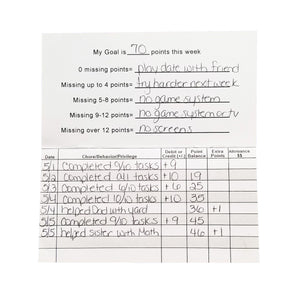 My Goal is 70 points this week
0 missing points= play date with friend
Missing up to 4 points= try harder next week
Missing 5-8 points= no game system
Missing 9-12 points= no game system or tv
Missing over 12 points= no screens
Date Chore/Behavior/Privilege Debit or Credit (+/-) Point Balance Extra Points Allowance $$
5/1 Completed 9/10 tasks +9
5/2 Completed all tasks +10 19
5/3 Completed 6/10 tasks +6 25
5/4 Completed 10/10 tasks +10 35
5/4 helped Dad with yard 36 +1
5/5 Completed 9/10 tasks +9 45
5/5 helped sister with Math 46 +1